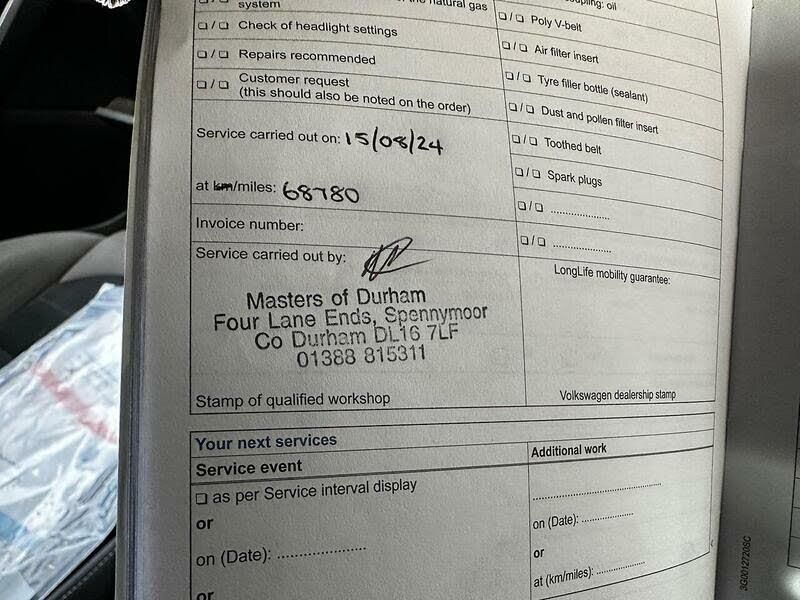 system
natural gas
❏ / ❏ Check of headlight settings
❏ / ❏ Repairs recommended
❏ / ❏ Customer request
(this should also be noted on the order)
Service carried out on: 15/08/24
at km/miles: 68780
Invoice number:
Service carried out by:
Masters of Durham
Four Lane Ends, Spennymoor
Co Durham DL16 7LF
01388 815311
Stamp of qualified workshop
coupling: oil
❏ / ❏ Poly V-belt
❏ / ❏ Air filter insert
❏ / ❏ Tyre filler bottle (sealant)
❏ / ❏ Dust and pollen filter insert
❏ / ❏ Toothed belt
❏ / ❏ Spark plugs
❏ / ❏ ....................
❏ / ❏ ....................
LongLife mobility guarantee:
Volkswagen dealership stamp
Your next services
Service event
❏ as per Service interval display
or
on (Date): ......................
or
Additional work
................................
on (Date): ................
or
at (km/miles): ...............
3G0012720SC